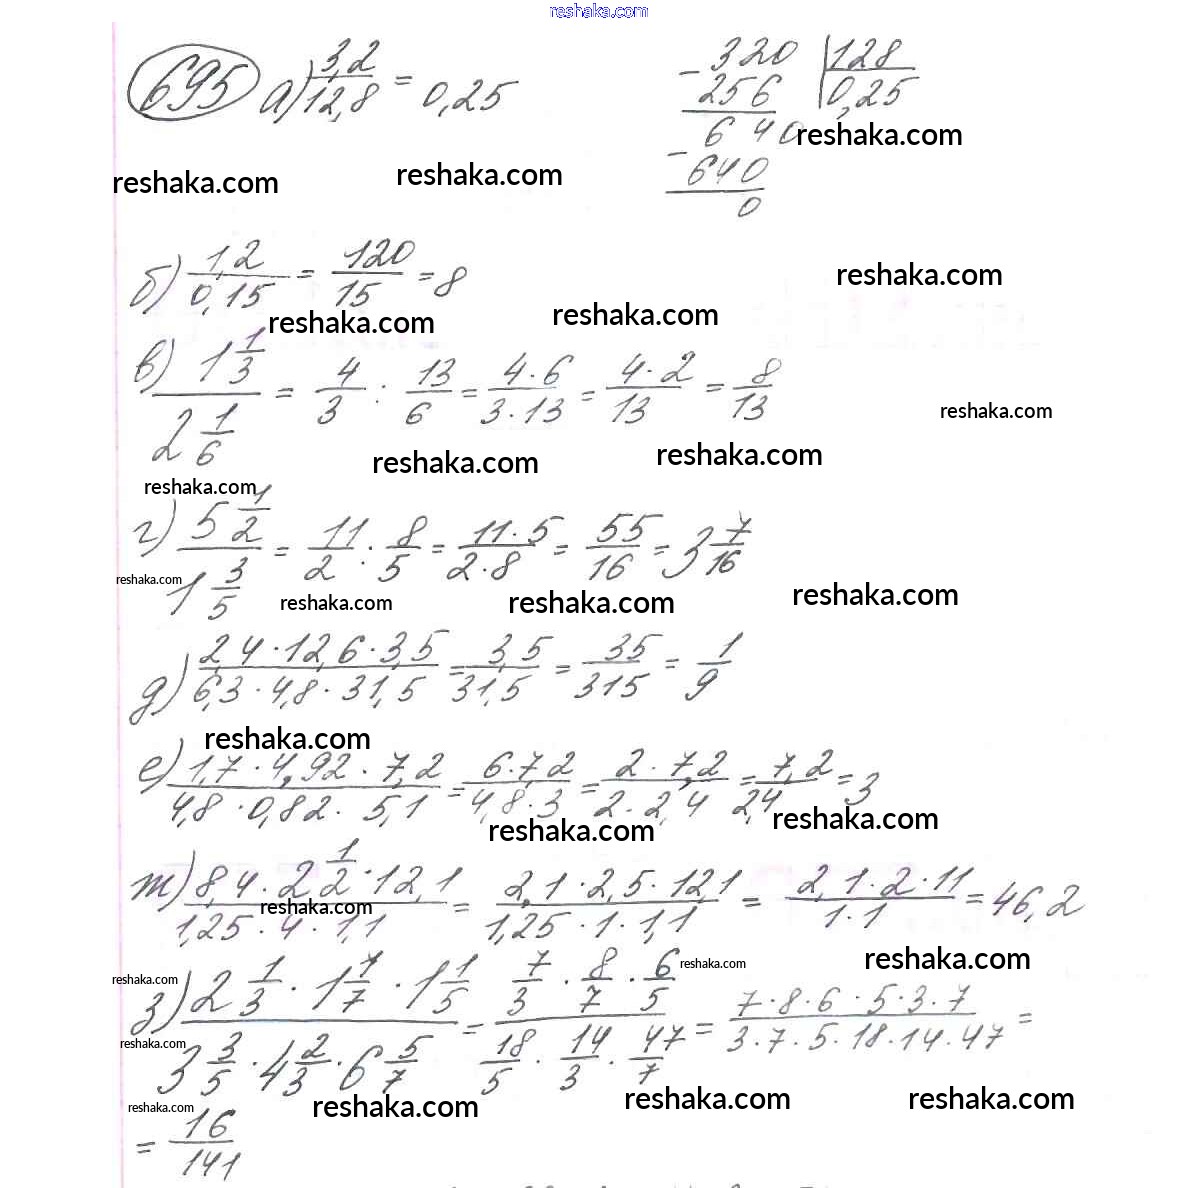 reshaka.com
695 а) 3,2/12,8 = 0,25
320 | 128
- 256 | 0,25
640 reshaka.com
- 640
0
reshaka.com reshaka.com
б) 1,2/0,15 = 120/15 = 8 reshaka.com
reshaka.com reshaka.com
в) 1 1/3 / 2 1/6 = 4/3 : 13/6 = 4·6/3·13 = 4·2/13 = 8/13 reshaka.com
reshaka.com reshaka.com
reshaka.com
г) 5 1/2 / 1 3/5 = 11/2 · 8/5 = 11·5/2·8 = 55/16 = 3 7/16
reshaka.com reshaka.com reshaka.com reshaka.com
д) 2,4·12,6·3,5/6,3·4,8·31,5 = 3,5/31,5 = 35/315 = 1/9
reshaka.com
е) 1,7·4,92·7,2/4,8·0,82·5,1 = 6·7,2/4,8·3 = 2·7,2/2·2,4 = 7,2/2,4 = 3
reshaka.com reshaka.com
ж) 8,4·2 1/2·12,1/1,25·4·1,1 = 2,1·2,5·12,1/1,25·1·1,1 = 2,1·2·11/1·1 = 46,2
reshaka.com
reshaka.com reshaka.com reshaka.com
з) 2 1/3 · 1 1/7 · 1 1/5 / 3 3/5 · 4 2/3 · 6 5/7 = 7/3 · 8/7 · 6/5 / 18/5 · 14/3 · 47/7 = 7·8·6·5·3·7/3·7·5·18·14·47 =
reshaka.com
reshaka.com reshaka.com reshaka.com reshaka.com
= 16/141